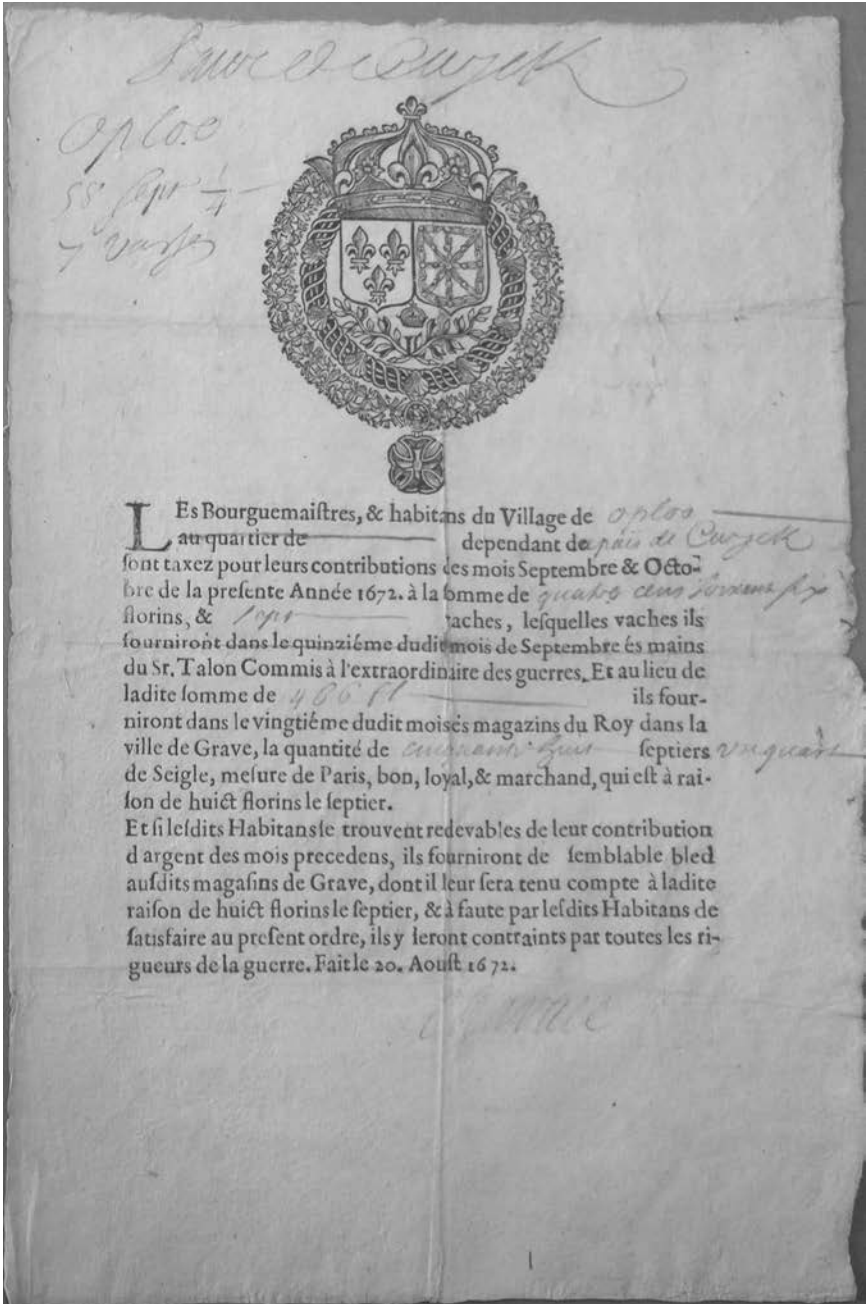 Oploo
58 sept 1/4
7 vaches
LEs Bourguemaiſtres, & habitans du Village de oploo
au quartier de dependant du païs de Cuyck
ſont taxez pour leurs contributions des mois Septembre & Octo-
bre de la preſente Année 1672. à la ſomme de quatre cens soixante six
florins, & sept vaches, leſquelles vaches ils
fourniront dans le quinziéme dudit mois de Septembre és mains
du Sr. Talon Commis à l'extraordinaire des guerres. Et au lieu de
ladite ſomme de 466 fl ils four-
niront dans le vingtiéme dudit mois és magazins du Roy dans la
ville de Grave, la quantité de cinquante huit ſeptiers un quart
de Seigle, meſure de Paris, bon, loyal, & marchand, qui eſt à rai-
ſon de huict florins le ſeptier.
Et ſi leſdits Habitans ſe trouvent redevables de leur contribution
d argent des mois precedens, ils fourniront de ſemblable bled
auſdits magaſins de Grave, dont il leur ſera tenu compte à ladite
raiſon de huict florins le ſeptier, & à faute par leſdits Habitans de
ſatisfaire au preſent ordre, ils y ſeront contraints par toutes les ri-
gueurs de la guerre. Fait le 20. Aouſt 1672.